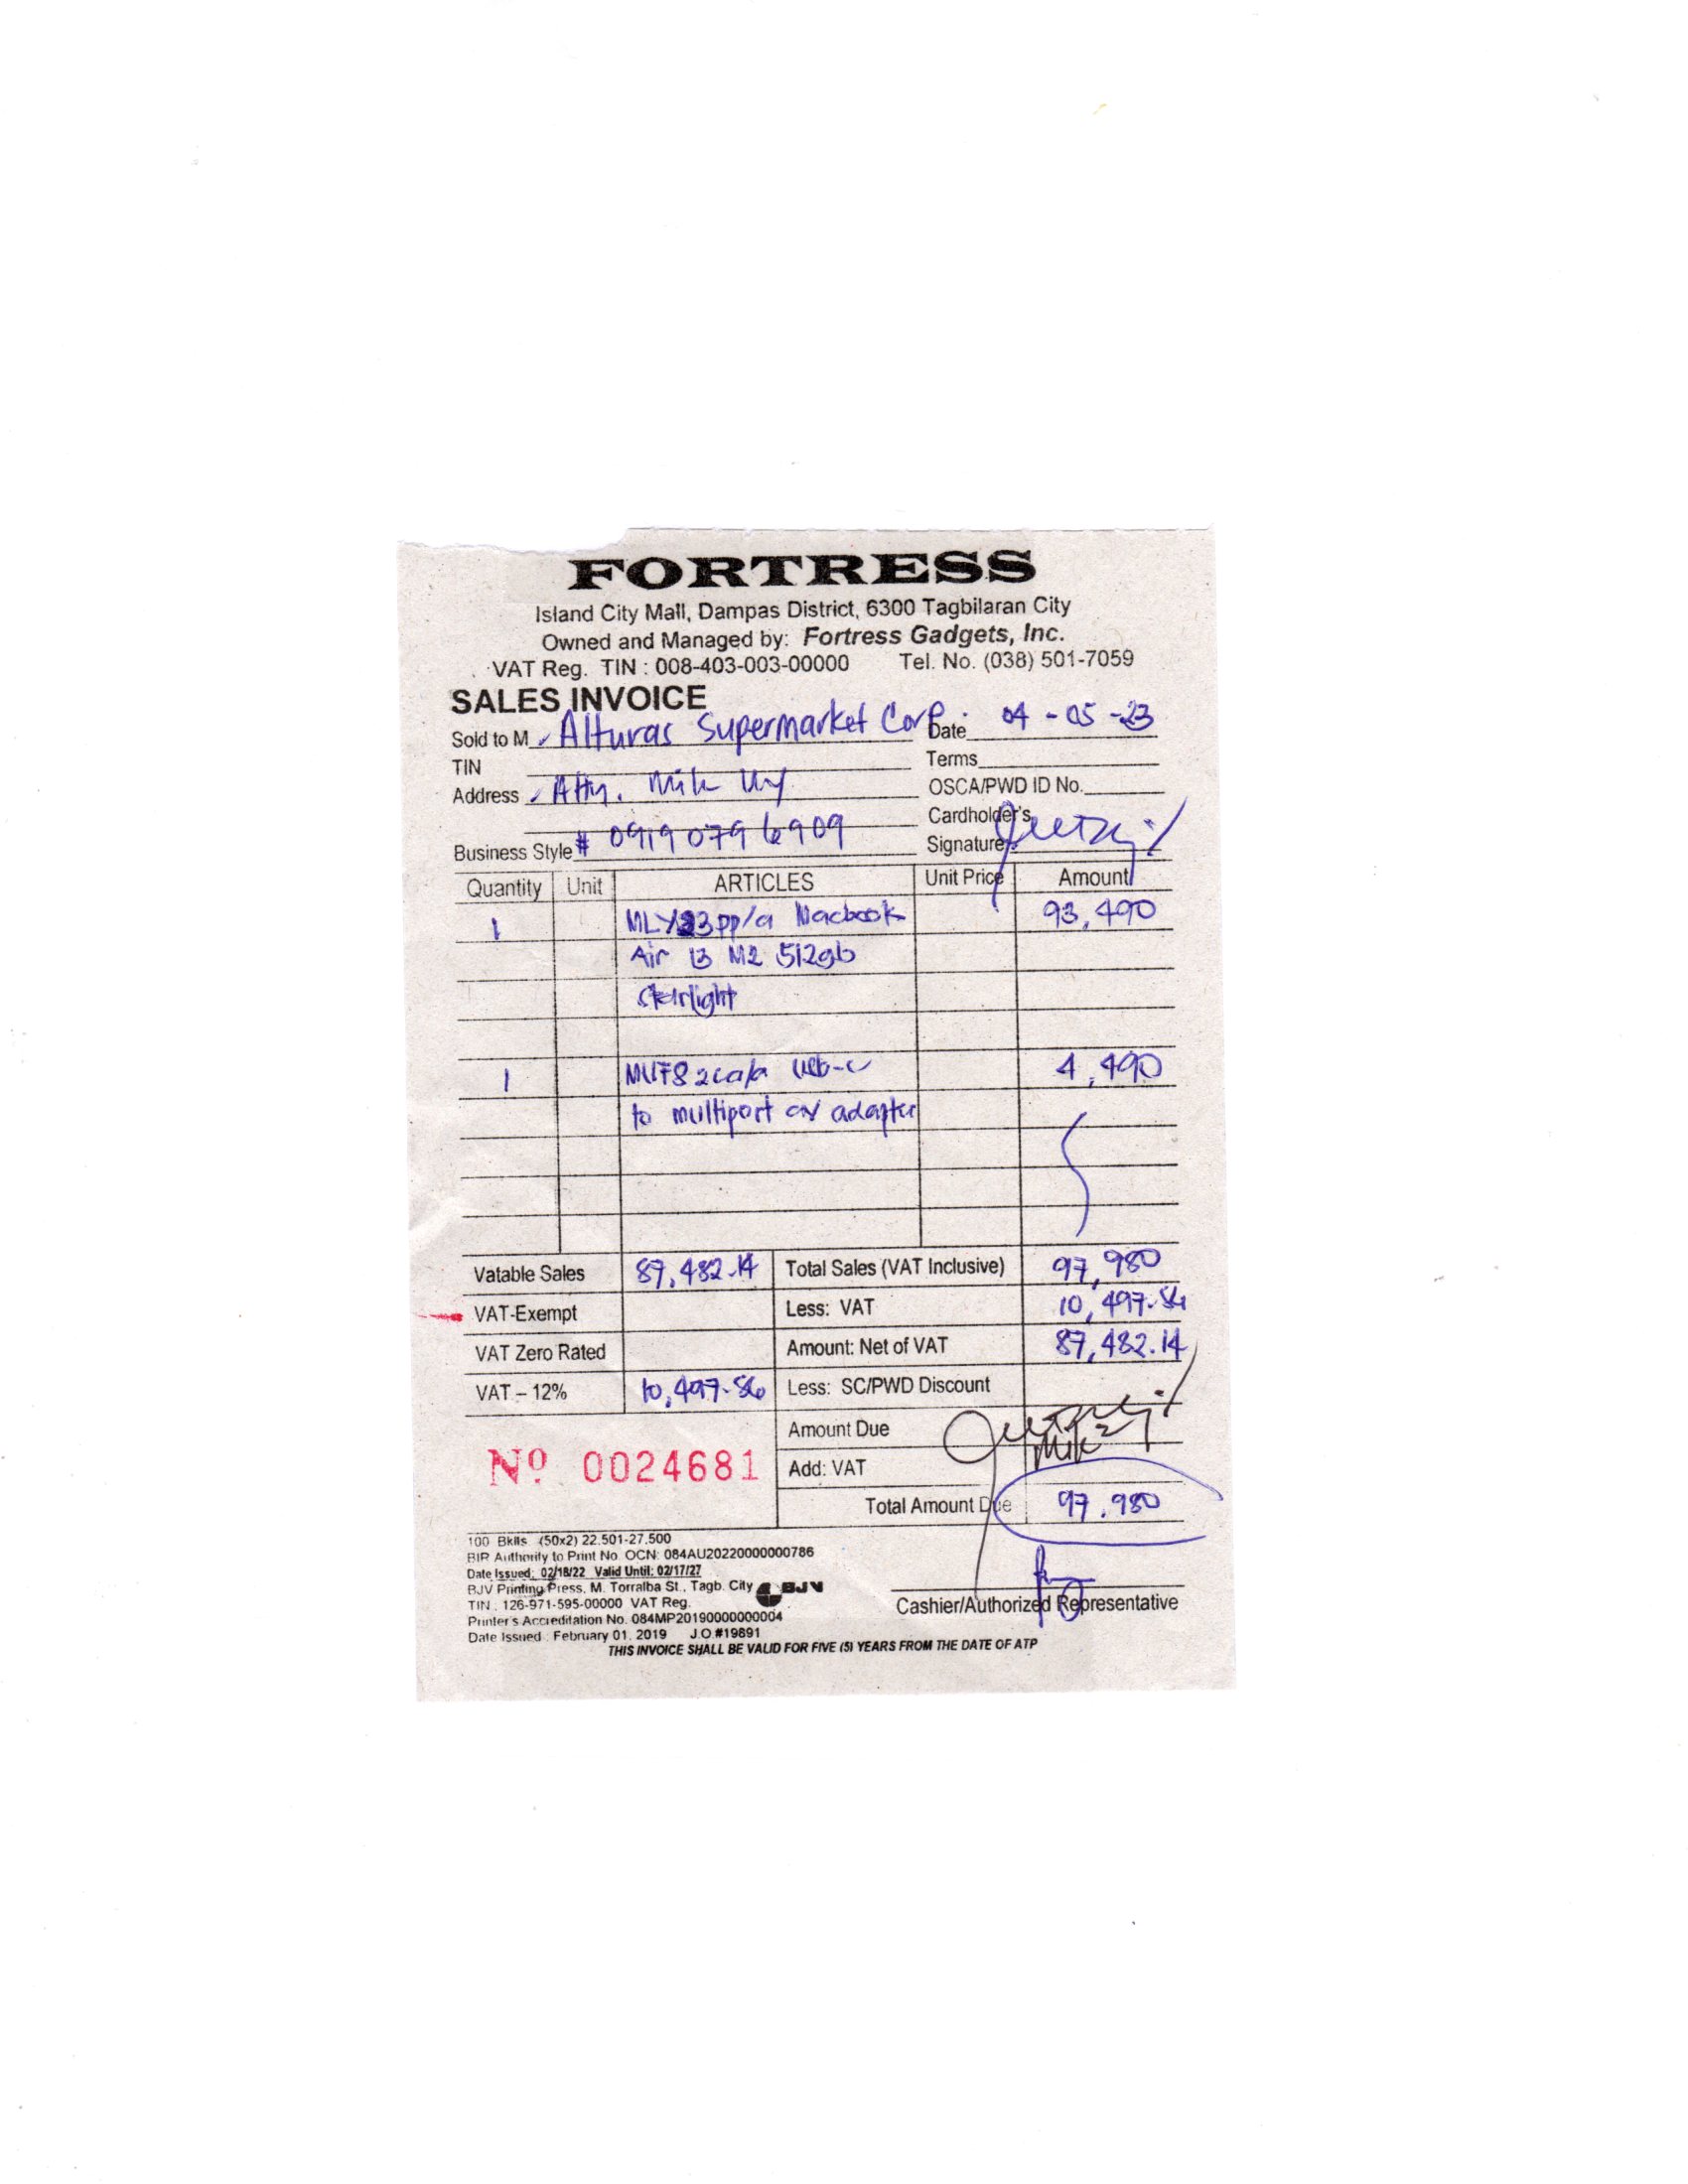 FORTRESS
Island City Mall, Dampas District, 6300 Tagbilaran City
Owned and Managed by: Fortress Gadgets, Inc.
VAT Reg. TIN : 008-403-003-00000 Tel. No. (038) 501-7059
SALES INVOICE
Sold to M Alturas Supermarket Corp. Date 04-05-23
TIN Terms
Address Atty. Mik Uy OSCA/PWD ID No.
Cardholder's
Business Style # 0919 079 6909 Signature
Quantity Unit ARTICLES Unit Price Amount
1 MLY23pp/a Macbook 93,490
Air 13 M2 512gb
Starlight
1 MUF82ca/a usb-c 4,490
to multiport av adapter
Vatable Sales 87,482.14 Total Sales (VAT Inclusive) 97,980
VAT-Exempt Less: VAT 10,497.86
VAT Zero Rated Amount: Net of VAT 87,482.14
VAT – 12% 10,497.86 Less: SC/PWD Discount
Amount Due
Nº 0024681 Add: VAT
Total Amount Due 97,980
100 Bklts. (50x2) 22.501-27.500
BIR Authority to Print No. OCN: 084AU20220000000786
Date Issued: 02/18/22 Valid Until: 02/17/27
BJV Printing Press, M. Torralba St., Tagb. City BJV
TIN. 126-971-595-00000 VAT Reg.
Printer's Accreditation No. 084MP20190000000004
Date Issued: February 01, 2019 J.O.#19891
Cashier/Authorized Representative
THIS INVOICE SHALL BE VALID FOR FIVE (5) YEARS FROM THE DATE OF ATP